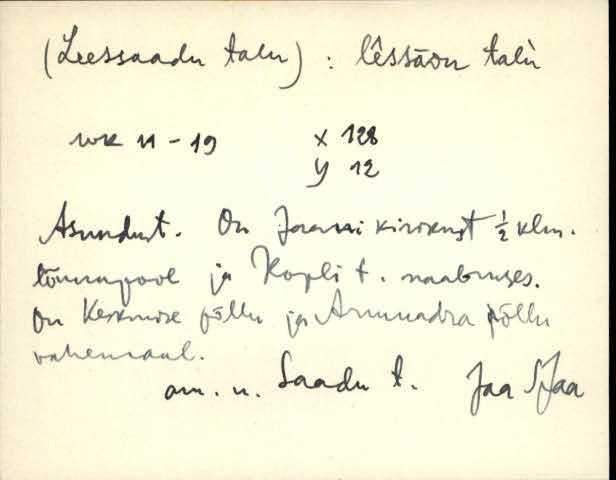 (Leessaadu talu) : lêssāδu talù
wk 11 - 19 x 128
y 12
Asundust. On Jaani kirikust ½ klm.
põllu ja Kopli t. naabruses.
On Keskmise põllu ja põllu
vahemaal.
am. n. Saadu t. Jaa Jaa